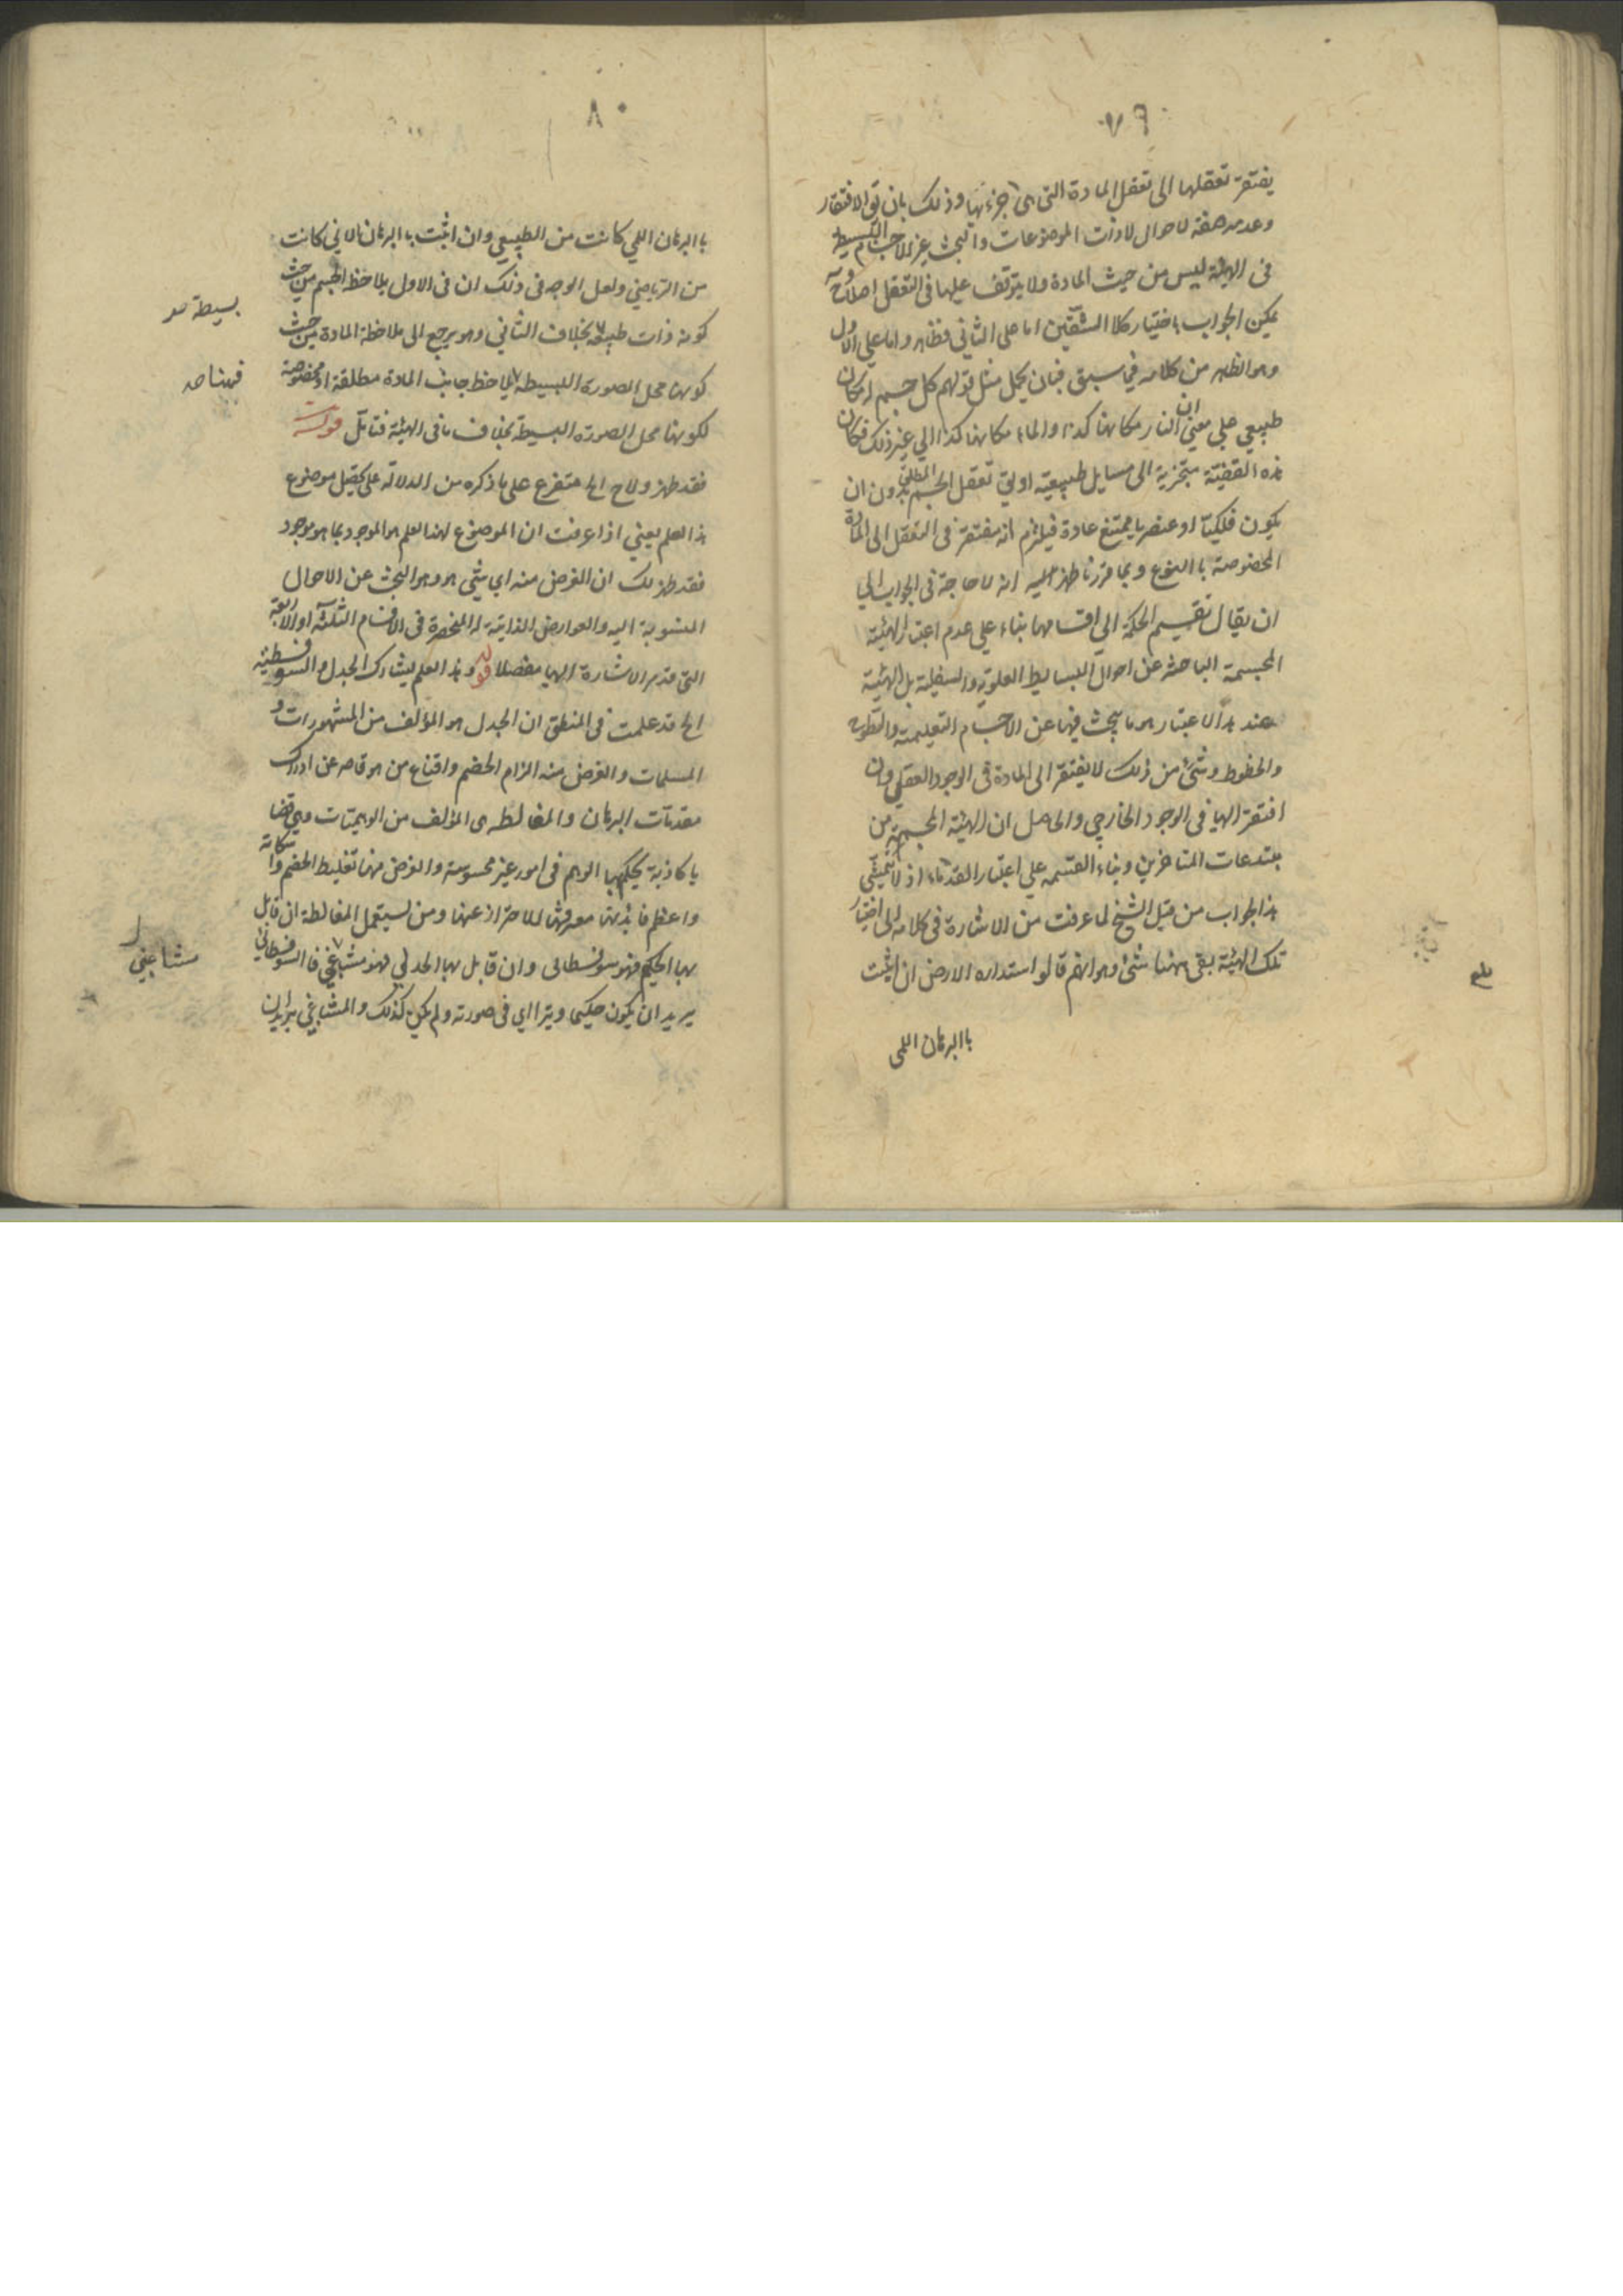 ٧٩
يفتقر تعقلها الى تعقل المادة التى هى جزءها وذلك بان يق الافتقار
وعدمه صفة لاحوال لا ذات الموضوعات والبحث عن الاجسام البسيطة
فى الهيئة ليس من حيث المادة ولا يتوقف عليها فى التعقل اصلا وح
يمكن الجواب باختيار كلا الشقين اما على الثانى فظاهر واما على الاول
وهو الظاهر من كلامه فيما سبق فبان يحمل مثل قولهم كل جسم له مكان
طبيعى على معنى ان النار مكانها كذا والماء مكانها كذا الى غير ذلك فكان
هذه القضية متجزية الى مسايل طبيعية اولى تعقل الجسم المطلق بدون ان
يكون فلكيا او عنصريا يمتنع عادة فيلزم انه مفتقر فى التعقل الى المادة
المخصوصة بالنوع وبما قررنا ظهر انه لا حاجة فى الجواب الى
ان يقال تقسيم الحكمة الى اقسامها بناء على عدم اعتبار الهيئة
المجسمة الباحثة عن احوال البسايط العلوية والسفلية بل الهيئة
عند هذا الاعتبار هو ما يبحث فيها عن الاجسام التعليمية والسطوح
والخطوط وشئ من ذلك لا يفتقر الى المادة فى الوجود العقلى وان
افتقر اليها فى الوجود الخارجى والحاصل ان الهيئة المجسمة من
مبتدعات المتاخرين وبناء القسمة على اعتبار القدماء اذ لا يتمشى
هذا الجواب من قبل الشيخ لما عرفت من الاشارة فى كلامه الى اختيار
تلك الهيئة بقى ههنا شئ وهو انهم قالوا استدارة الارض ان اثبت
باالبرهان اللمى
٨٠
باالبرهان اللمى كانت من الطبيعى وان اثبت باالبرهان الانى كانت
من الرياضى ولعل الوجه فى ذلك ان فى الاول يلاحظ الجسم من حيث
كونه ذات طبيعة بخلاف الثانى وهو يرجع الى ملاحظة المادة من حيث
كونها محل الصورة البسيطة يلاحظ جانب المادة مطلقة او مخصوصة
لكونها محل الصورة البسيطة بخلاف ما فى الهيئة فتامل قوله
فقد ظهر ولاح اه متفرع على ما ذكره من الدلالة على تحصيل موضوع
هذا العلم يعنى اذا عرفت ان الموضوع لهذا العلم هو الموجود بما هو موجود
فقد ظهر لك ان الغرض منه اى شئ هو وهو البحث عن الاحوال
المنسوبة اليه والعوارض الذاتية له المنحصرة فى الاقسام الثلثة او الاربعة
التى قد مر الاشارة اليها مفصلا قوله وهذا العلم يشارك الجدل والسوفسطية
اه قد علمت فى المنطق ان الجدل هو المؤلف من المشهورات و
المسلمات والغرض منه الزام الخصم واقناع من هو قاصر عن ادراك
مقدمات البرهان والمغالطة هى المؤلف من الوهميات وهى قضا
يا كاذبة يحكم بها الوهم فى امور غير محسوسة والغرض منها تغليط الخصم واسكاته
واعظم فايدتها معرفتها للاحتراز عنها ومن يستعمل المغالطة ان قابل
بها الحكيم فهو سوفسطائى وان قابل بها الجدلى فهو مشاغبى فالسوفسطائى
يريد ان يكون حكيما ويتراأى فى صورته ولم يكن كذلك والمشاغبى يريد ان
بسيطة صد
فههنا صد
مشاغبى